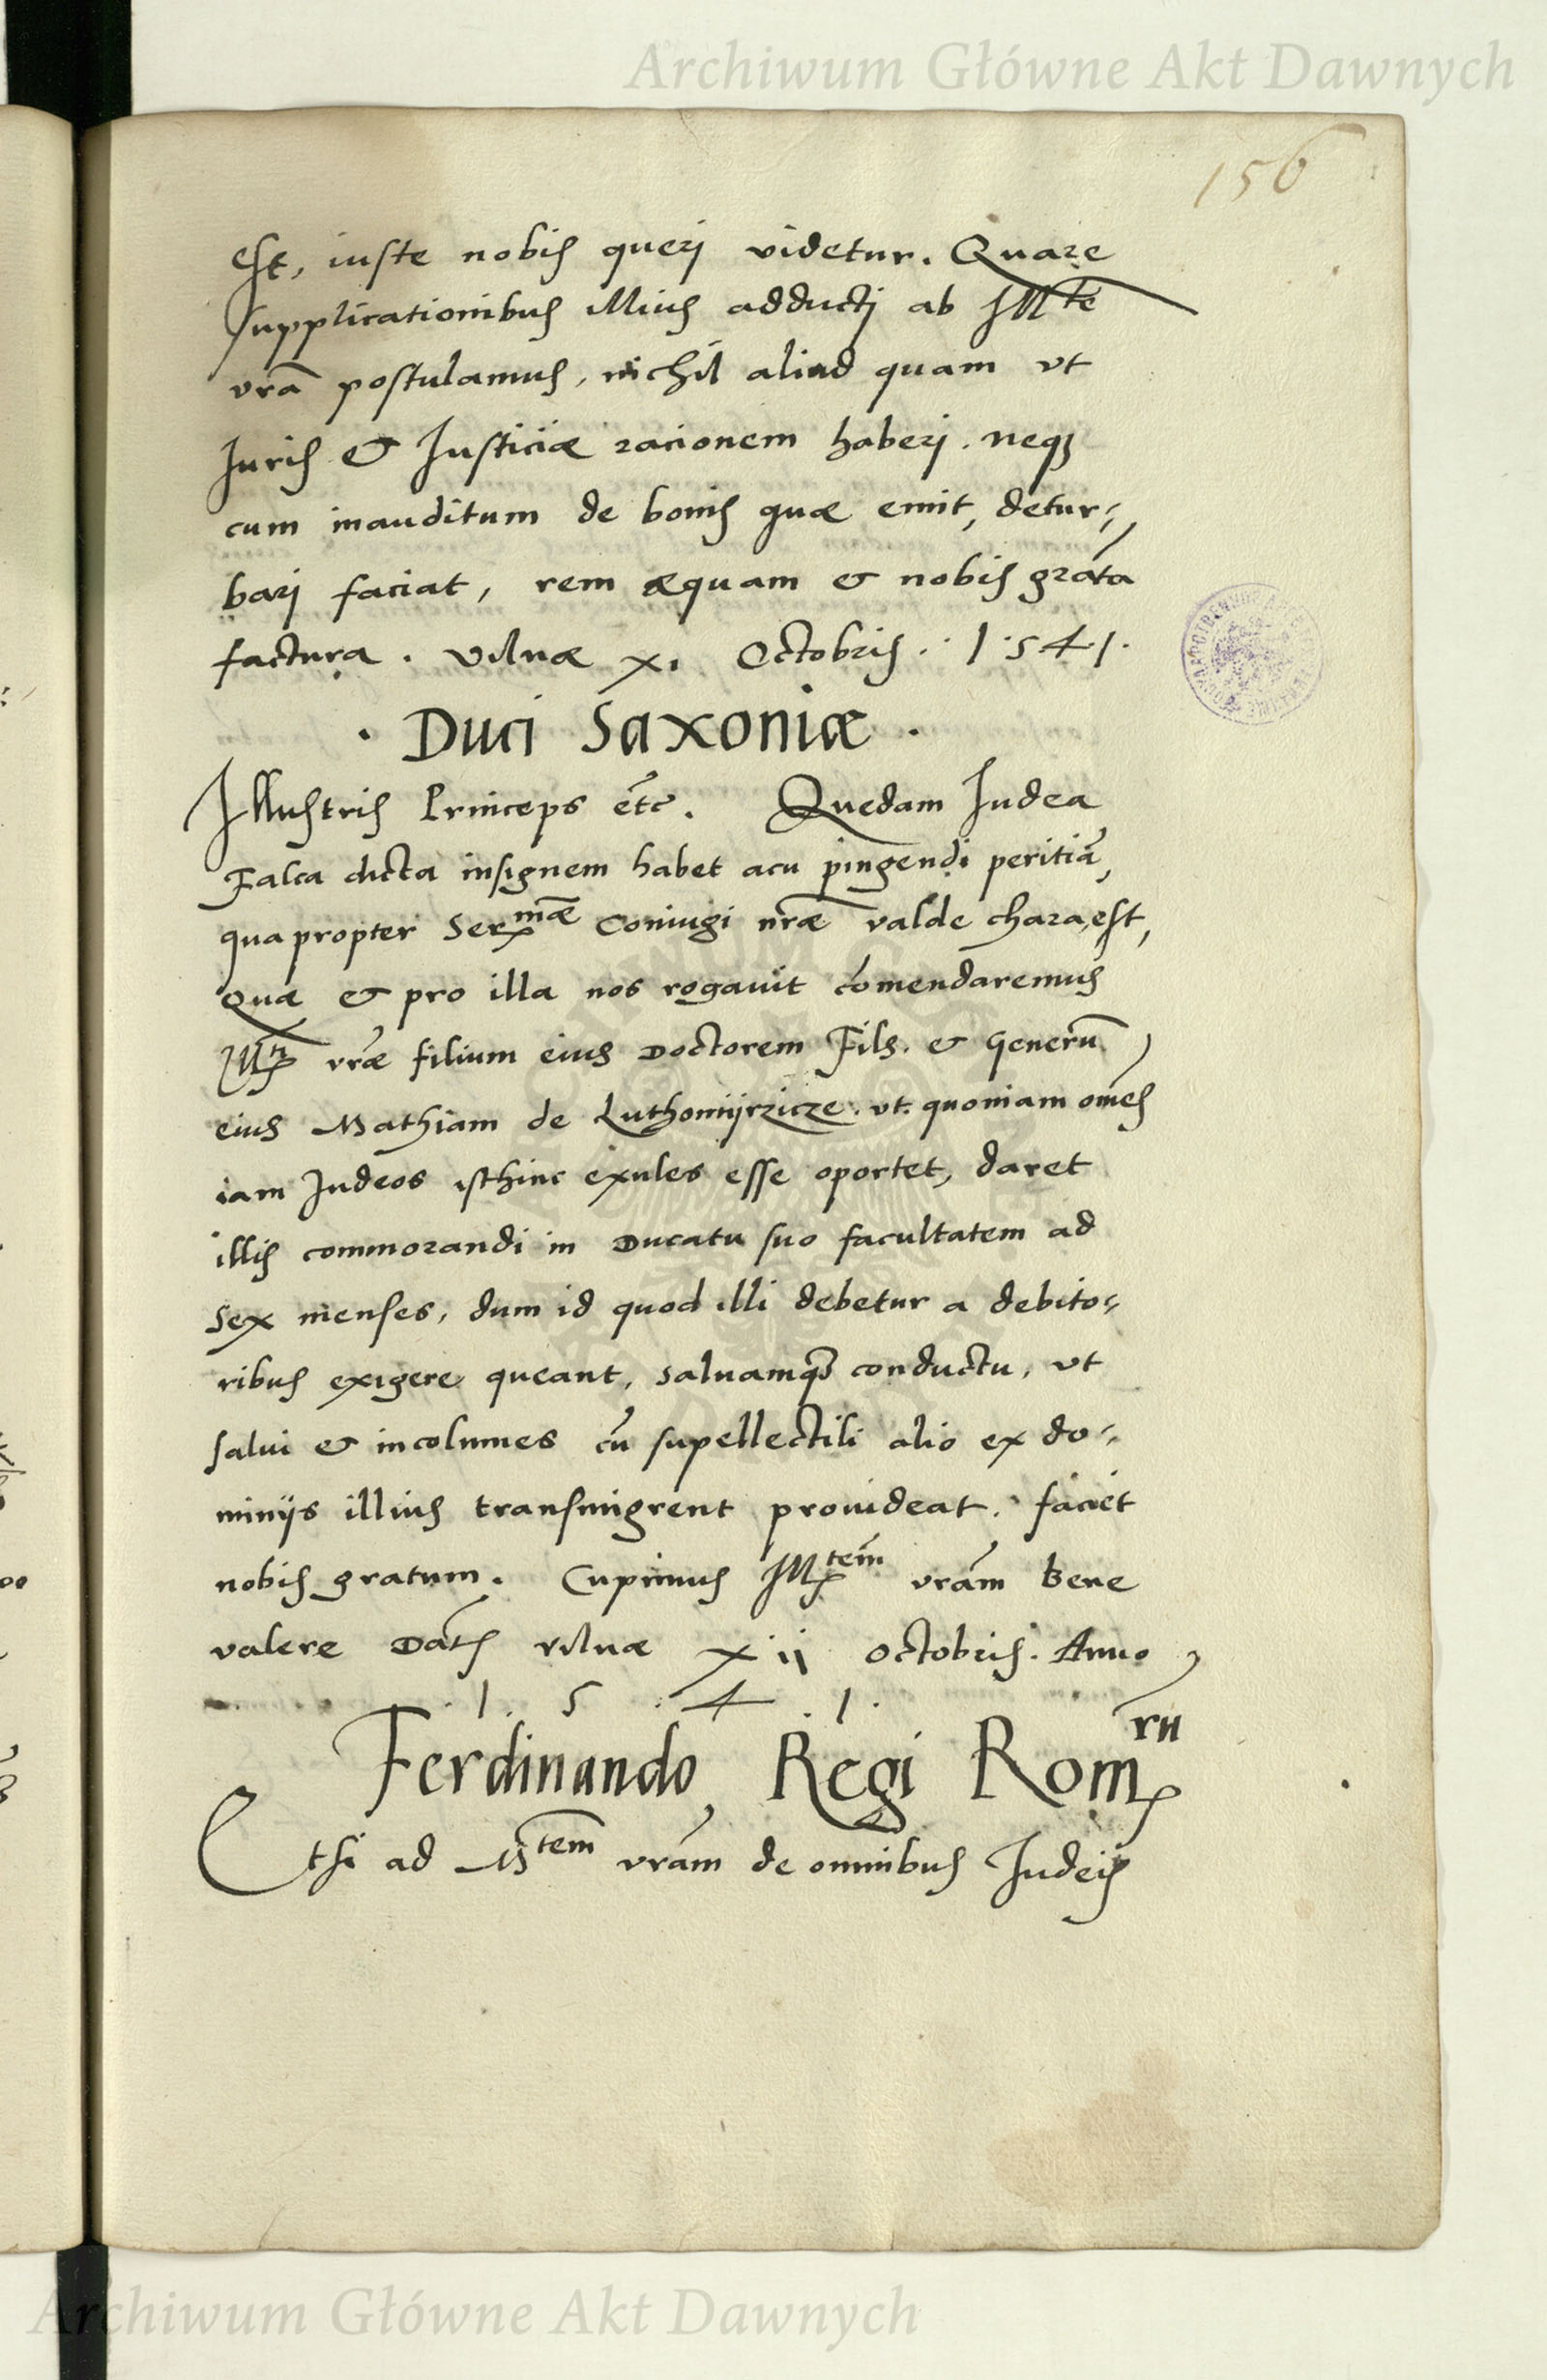 Archiwum Główne Akt Dawnych
156
est, iuste nobis queri videtur. Quare
supplicationibus illius adducti ab Illte
vrã postulamus, nichil aliud quam vt
Iuris & Iusticiæ racionem haberi. neq3
cum inauditum de bonis quæ emit, detur=
bari faciat, rem æquam & nobis gratã
factura. Vilnæ xi Octobris. 1.5.4.1.
. Duci Saxoniæ .
Illustris Princeps etc̃. Quedam Iudea
Falca dicta insignem habet acu pingendi peritiã,
qua propter Sermæ Coniugi nræ̃ valde chara est,
Quæ & pro illa nos rogauit cõmendaremus
vræ̃ filium eius Doctorem Fils. & Generũ
eius Mathiam de Luthomijrzicze. vt. quoniam om̃es
iam Iudeos isthinc exules esse oportet, daret
illis commorandi in Ducatu suo facultatem ad
sex menses, dum id quod illi debetur a debito=
ribus exigere queant, saluamq3 conductu, vt
salui & incolumes cũ supellectili alio ex do=
minijs illius transmigrent prouideat. faciet
nobis gratum. Cupimus Illtem vrãm bene
valere Dat̃ vilnæ xii octobris. Anno
.1. 5 .4 .1.
Ferdinando Regi Romrũ
Etsi ad Mtem vrãm de omnibus Iudeis
Archiwum Główne Akt Dawnych